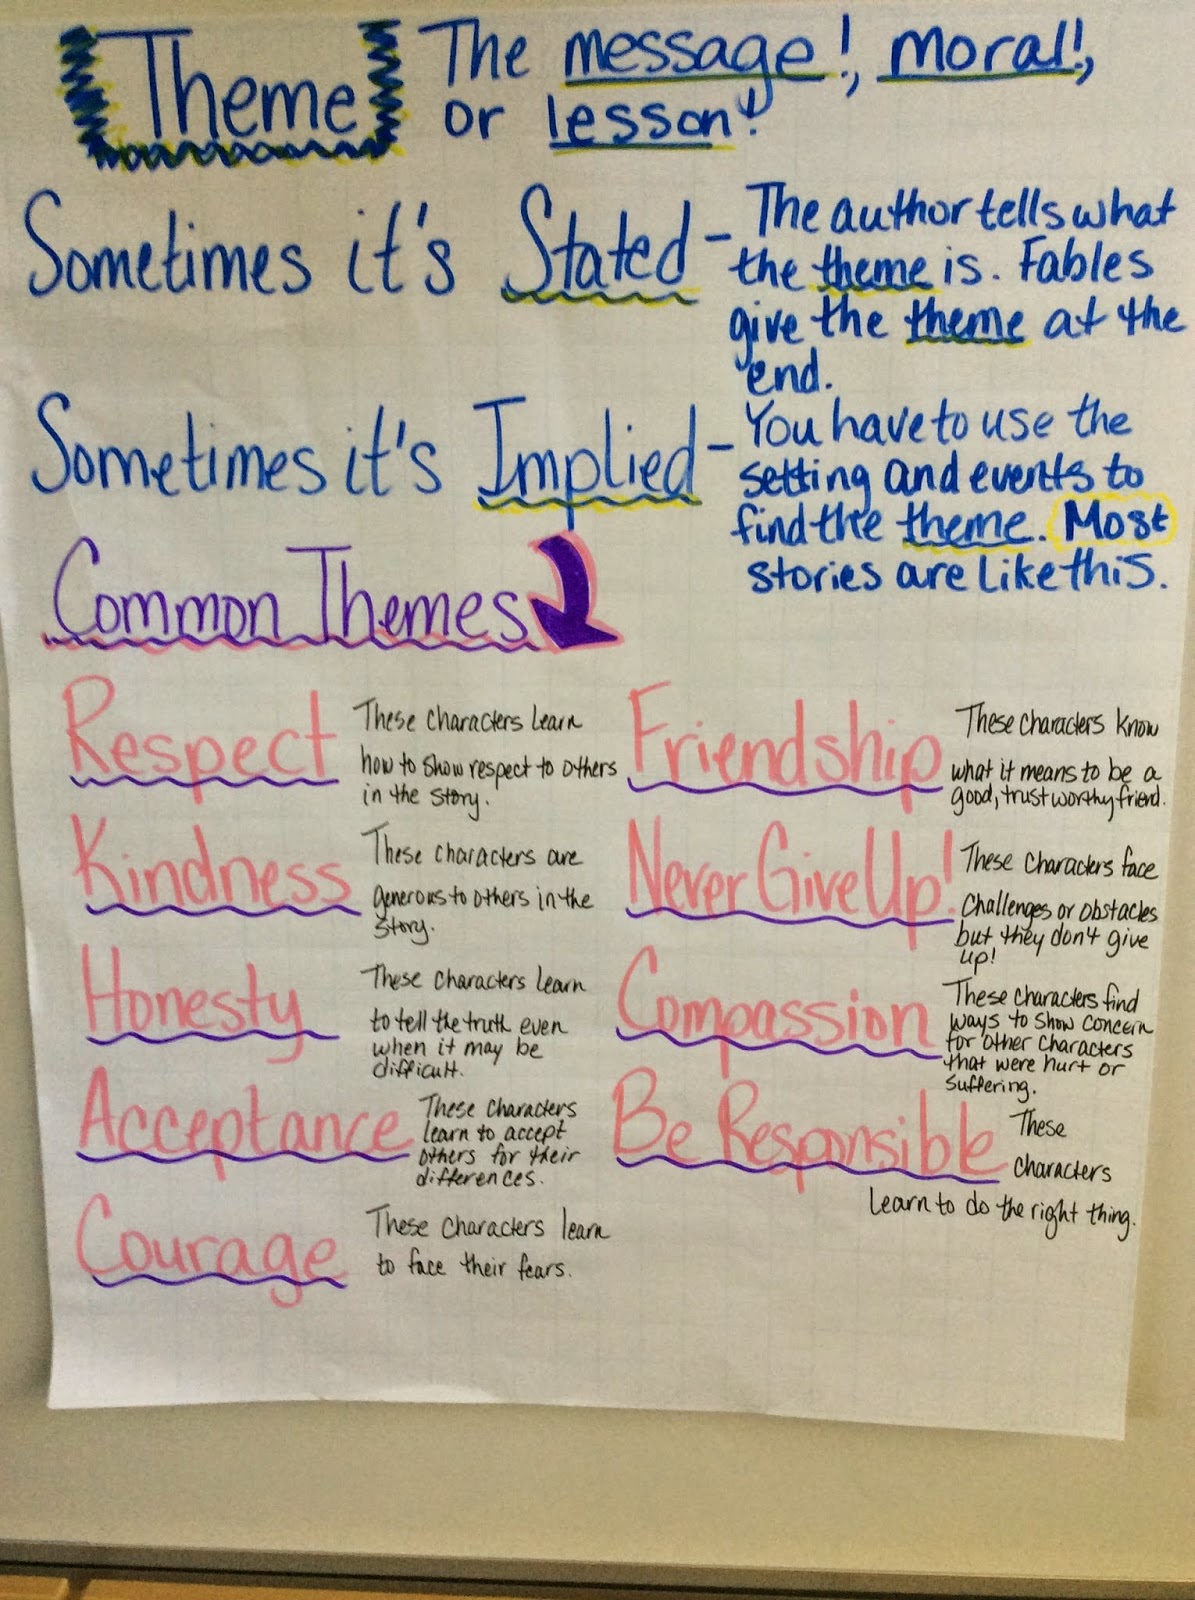 Theme
The message!, moral!,
or lesson!
Sometimes it's Stated -
The author tells what
the theme is. Fables
give the theme at the
end.
Sometimes it's Implied -
You have to use the
setting and events to
find the theme. Most
stories are like this.
Common Themes
Respect
These characters learn
how to show respect to others
in the story.
Kindness
These characters are
generous to others in the
story.
Honesty
These characters learn
to tell the truth even
when it may be
difficult.
Acceptance
These characters
learn to accept
others for their
differences.
Courage
These characters learn
to face their fears.
Friendship
These characters know
what it means to be a
good, trustworthy friend.
Never Give Up!
These characters face
challenges or obstacles
but they don't give
up!
Compassion
These characters find
ways to show concern
for other characters
that were hurt or
suffering.
Be Responsible
These
characters
learn to do the right thing.